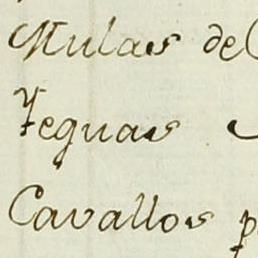 Mulas de
Yeguas
Cavallos p